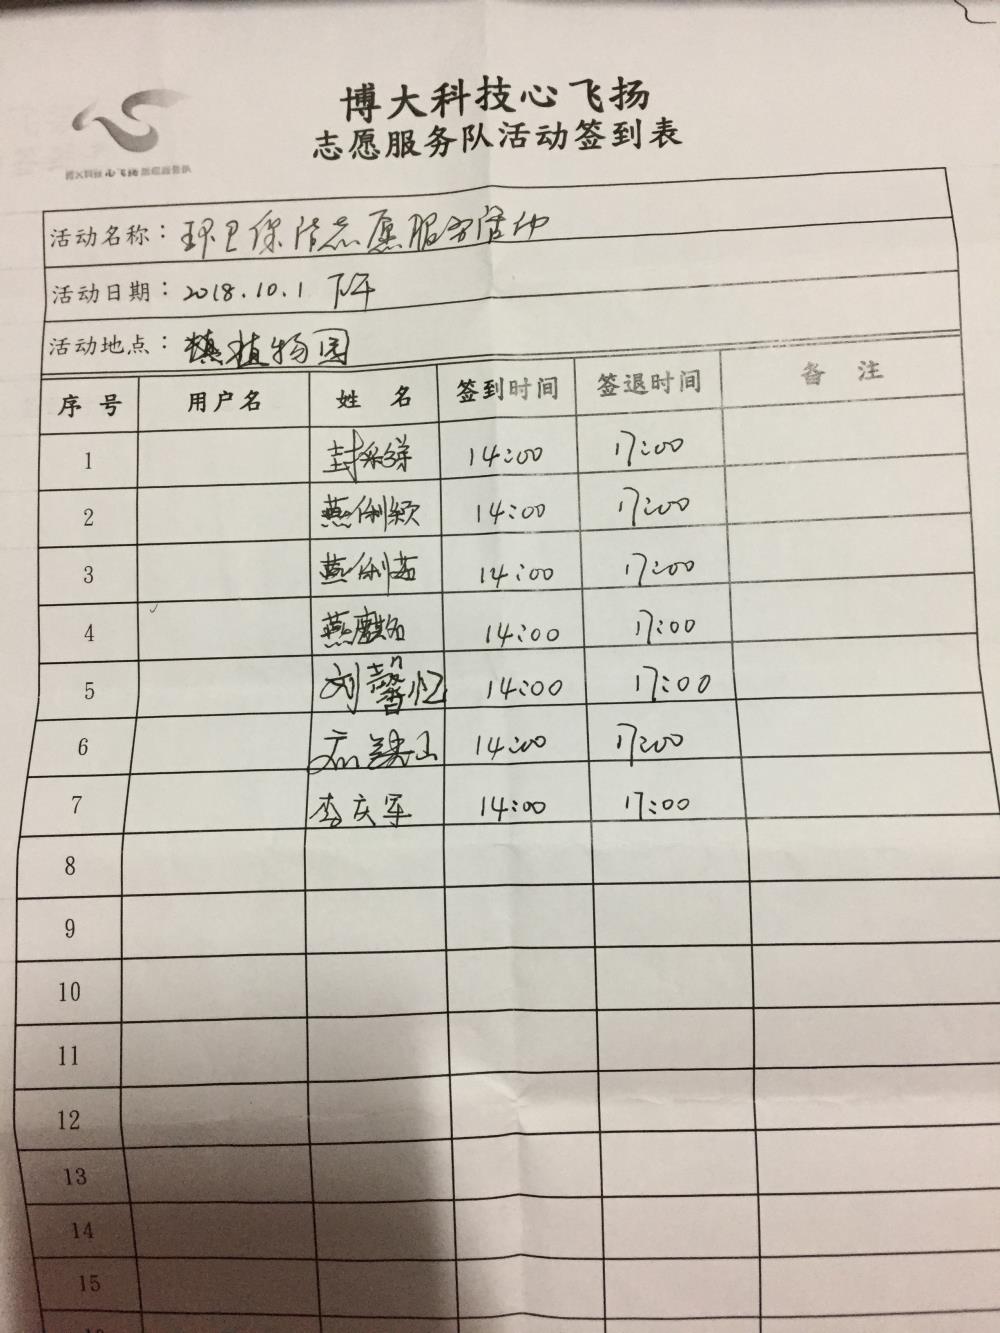 博大科技心飞扬
志愿服务队活动签到表
博大科技心飞扬志愿服务队
活动名称：环卫保洁志愿服务活动
活动日期：2018.10.1 下午
活动地点：镇植物园
序号 用户名 姓名 签到时间 签退时间 备注
1 封 14:00 17:00
2 燕俐颖 14:00 17:00
3 燕俐 14:00 17:00
4 燕 14:00 17:00
5 刘馨忆 14:00 17:00
6 14:00 17:00
7 李庆军 14:00 17:00
8
9
10
11
12
13
14
15